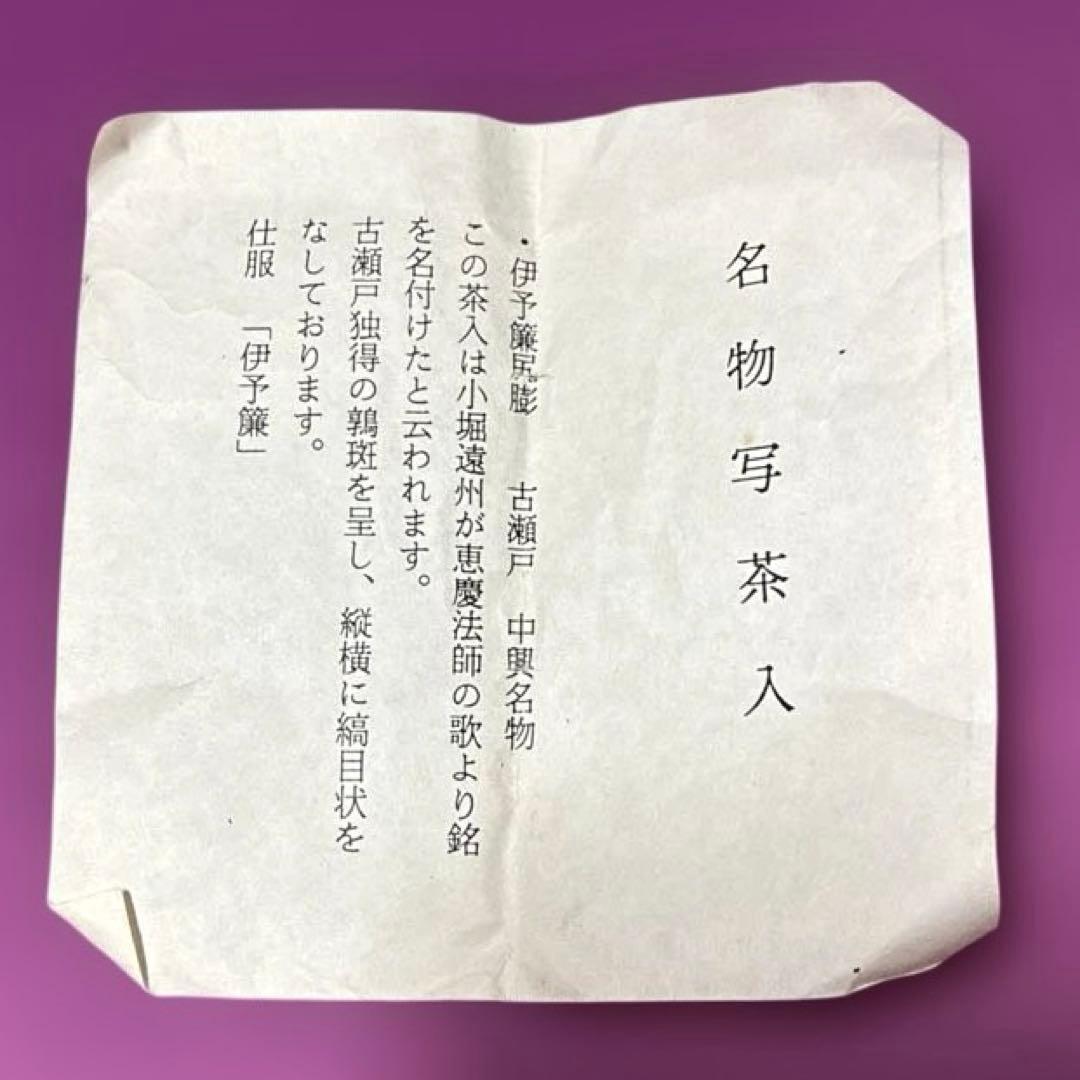 名物写茶入
・伊予簾尻膨　古瀬戸　中興名物
この茶入は小堀遠州が恵慶法師の歌より銘
を名付けたと云われます。
古瀬戸独得の鶉斑を呈し、縦横に縞目状を
なしております。
仕服　「伊予簾」